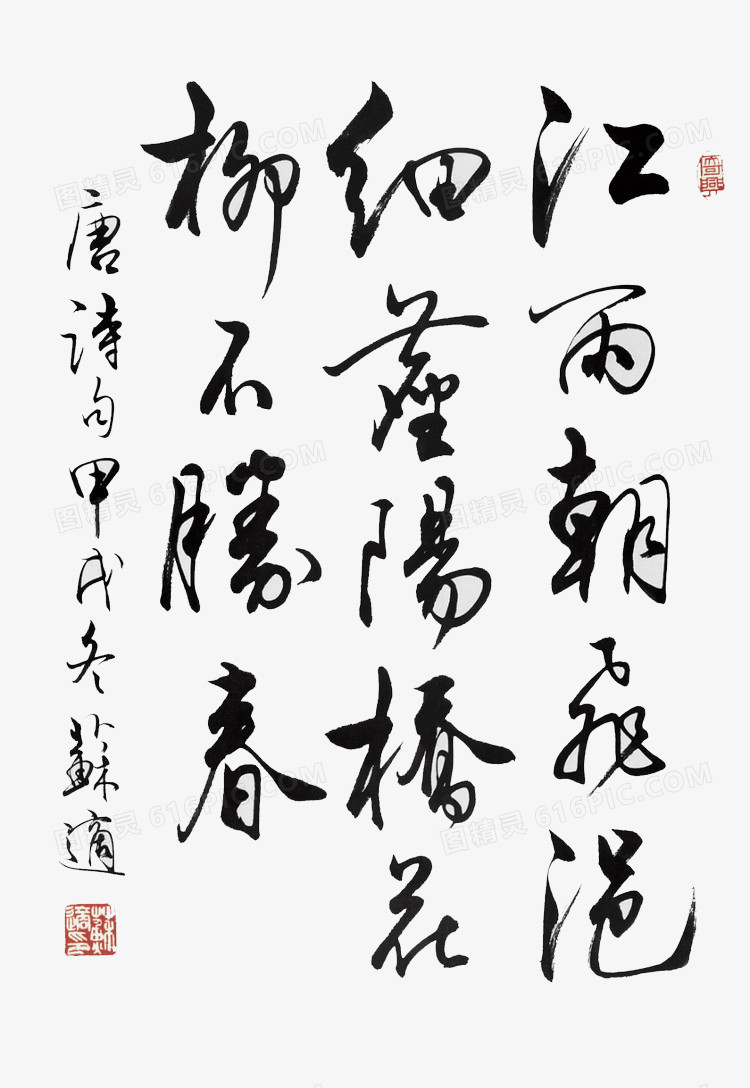 江雨朝飛浥
細塵陽橋花
柳不勝春
唐詩句甲戌冬蘇適
蘇適印
图精灵 616PIC.COM
图精灵 616PIC.COM
图精灵 616PIC.COM
图精灵 616PIC.COM
图精灵 616PIC.COM
图精灵 616PIC.COM